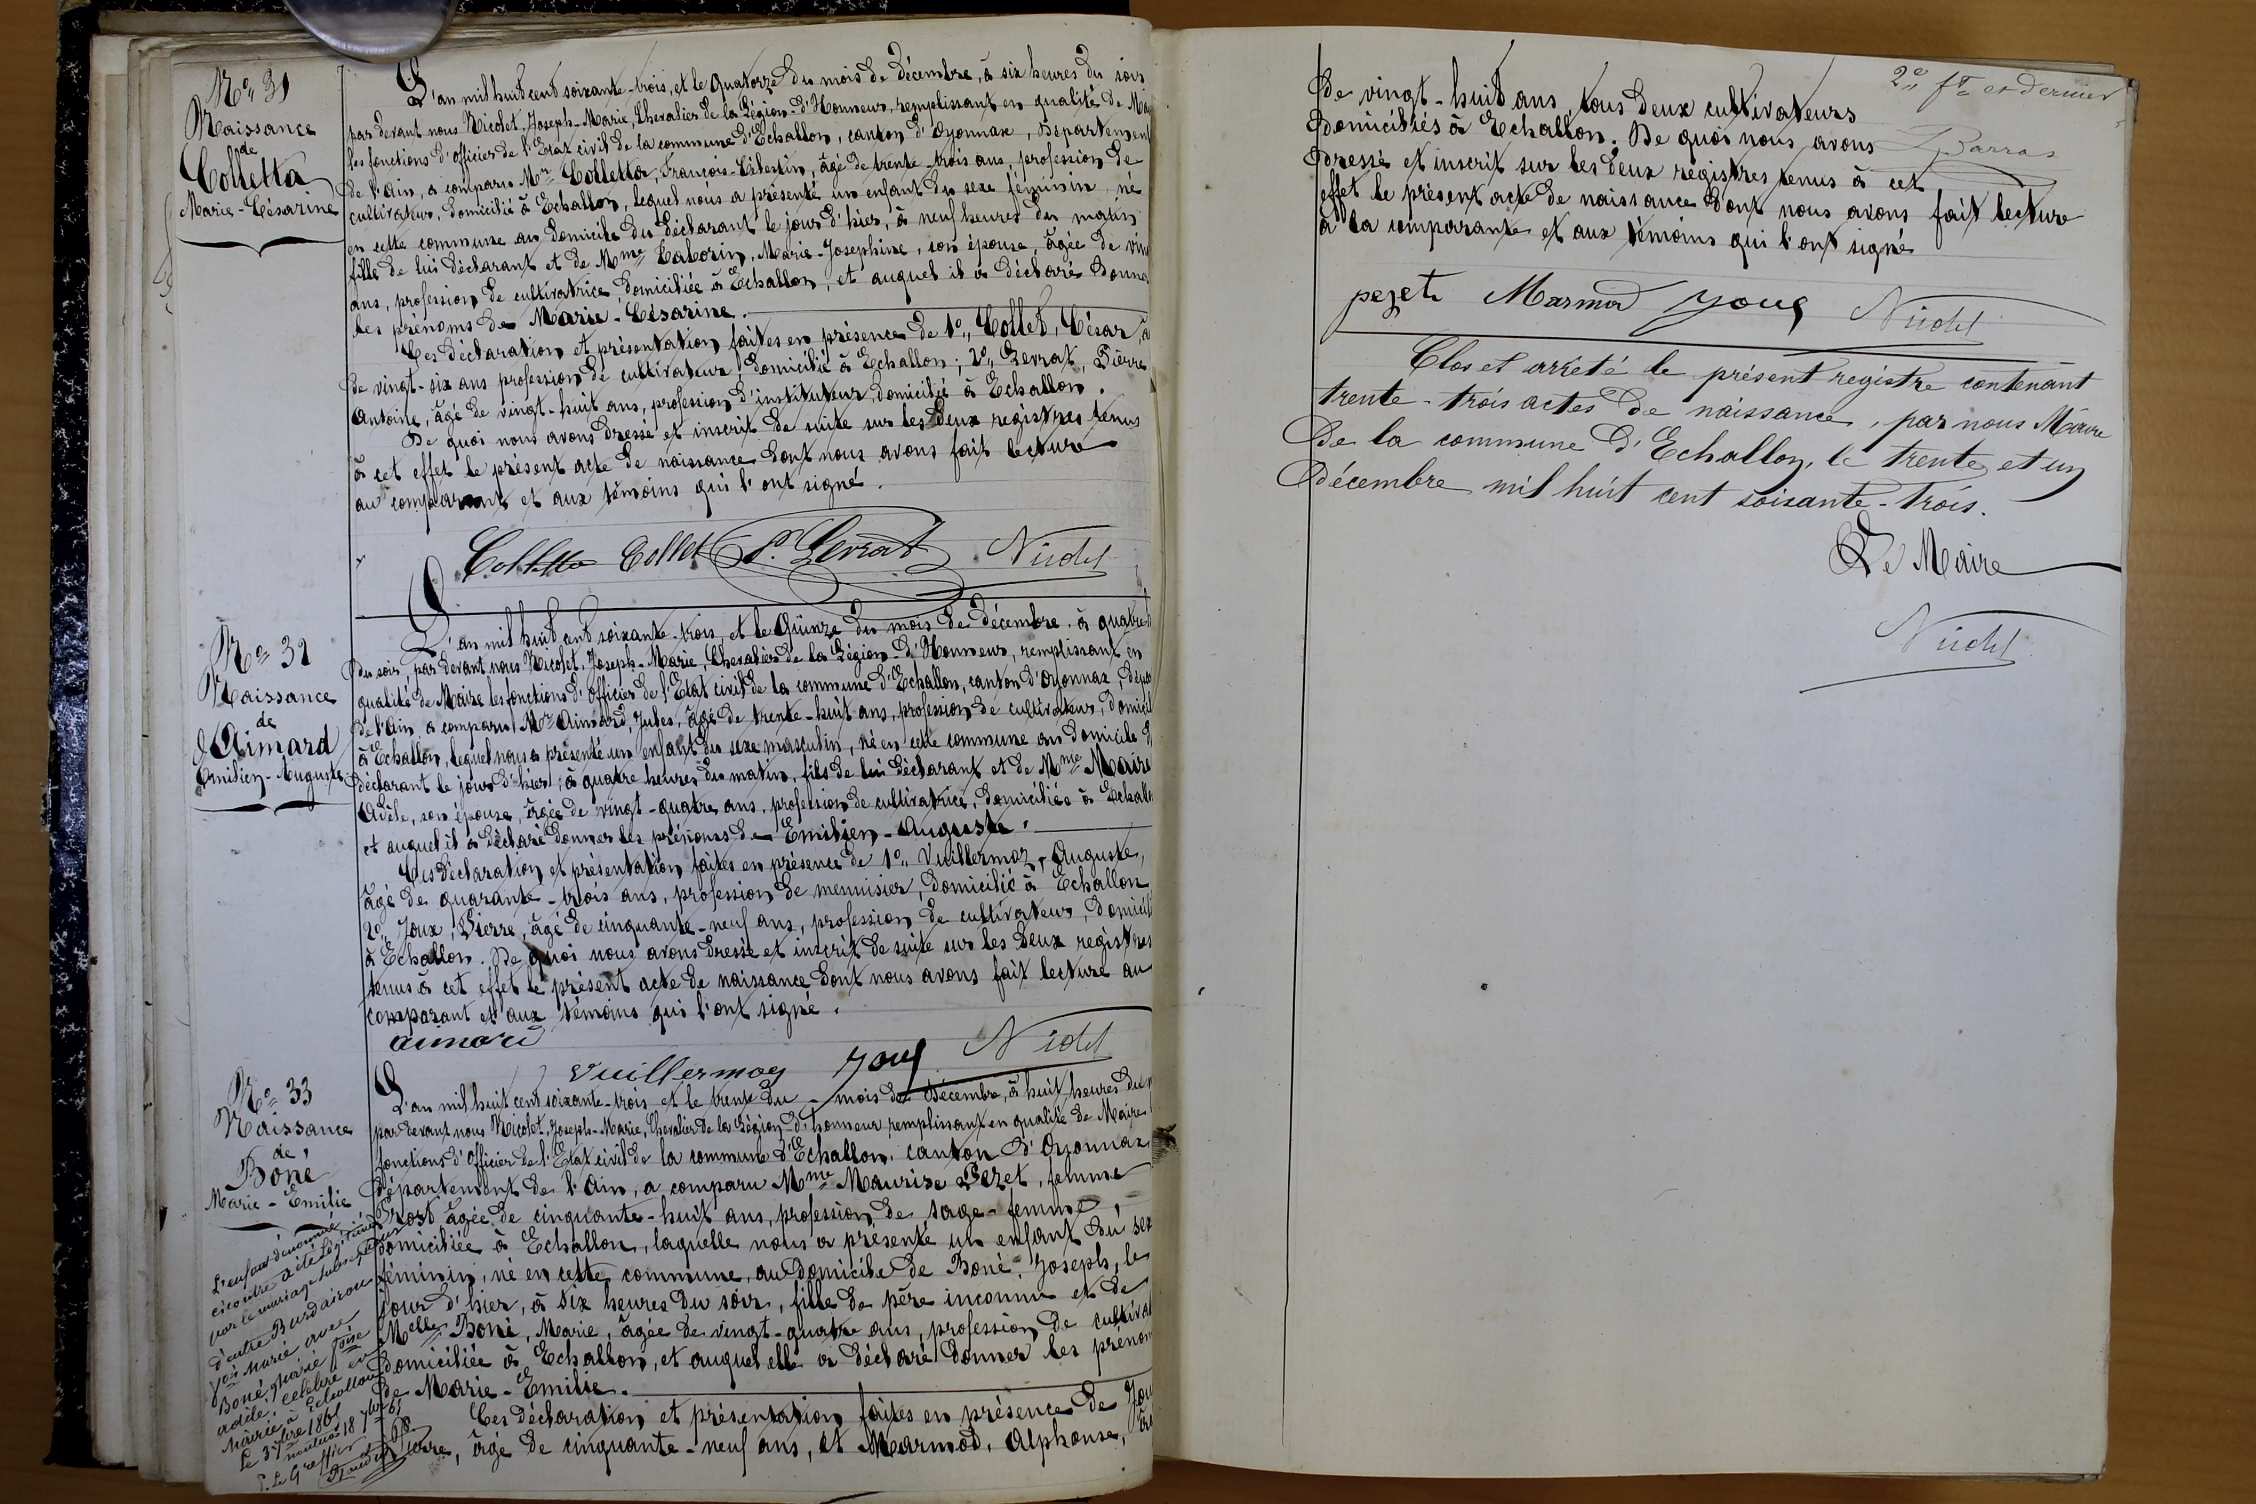 No 31
Naissance
de
Colletta
Marie-Césarine
L'an mil huit cent soixante-trois, et le Quatorze du mois de Décembre, à six heures du soir
par devant nous Nicolet, Joseph-Marie, Chevalier de la Légion-d'Honneur, remplissant en qualité de
les fonctions d'officier de l'Etat civil de la commune d'Echallon, canton d'Oyonnax, Département
de l'Ain, a comparu Mr Colletta, François-Célestin, âgé de trente-trois ans, profession de
cultivateur, domicilié à Echallon, lequel nous a présenté un enfant du sexe féminin, né
en cette commune au domicile du déclarant le jour d'hier, à neuf heures du matin
fille de lui déclarant et de Mme Taborin, Marie-Josephine, son épouse, âgée de
ans, profession de cultivatrice, domiciliée à Echallon, et auquel il a déclaré donner
les prénoms de Marie-Césarine.
Ces déclaration et présentation faites en présence de 1o Collet, César,
de vingt-six ans profession de cultivateur domicilié à Echallon; 2o Levrat, Pierre
Antoine, âgé de vingt-huit ans, profession d'instituteur, domicilié à Echallon.
De quoi nous avons dressé et inscrit de suite sur les deux registres tenus
à cet effet le présent acte de naissance dont nous avons fait lecture
au comparant et aux témoins qui l'ont signé.
Colletta Collet P. Levrat Nicolet
No 32
Naissance
de
Aimard
Emilien-Auguste
L'an mil huit cent soixante-trois, et le Quinze du mois de Décembre, à quatre
du soir, par devant nous Nicolet, Joseph-Marie, Chevalier de la Légion-d'Honneur, remplissant en
qualité de Maire les fonctions d'officier de l'Etat civil de la commune d'Echallon, canton d'Oyonnax,
de l'Ain, a comparu Mr Aimard, Jules, âgé de trente-huit ans, profession de cultivateur,
à Echallon, lequel nous a présenté un enfant du sexe masculin, né en cette commune au domicile
déclarant le jour d'hier, à quatre heures du matin, fils de lui déclarant et de Mme Maire
Adèle, son épouse, âgée de vingt-quatre ans, profession de cultivatrice, domiciliée à
et auquel il a déclaré donner les prénoms de Emilien-Auguste.
Ces déclaration et présentation faites en présence de 1o Vuillermoz, Auguste,
âgé de quarante-trois ans, profession de menuisier, domicilié à Echallon
2o Joux, Pierre, âgé de cinquante-neuf ans, profession de cultivateur,
à Echallon. De quoi nous avons dressé et inscrit de suite sur les deux registres
tenus à cet effet le présent acte de naissance dont nous avons fait lecture au
comparant et aux témoins qui l'ont signé.
aimard
Vuillermoz Joux Nicolet
No 33
Naissance
de
Boné
Marie-Emilie
L'enfant dénommé
ci contre a été légitimé
par le mariage subséquent
d'entre Burdairon
Jos Marie avec
Boné Marie José
adèle, célébré en
Mairie à Echallon
Le 3 1865
P. Le Greffier
L'an mil huit cent soixante-trois et le trente du mois de Décembre, à huit heures du
par devant nous Nicolet, Joseph-Marie, Chevalier de la Légion-d'honneur, remplissant en qualité de Maire
fonctions d'officier de l'Etat civil de la commune d'Echallon, canton d'Oyonnax
département de l'Ain, a comparu Mme Maurise Pezet, femme
Prost âgée de cinquante-huit ans, profession de sage-femme,
domiciliée à Echallon, laquelle nous a présenté un enfant du
féminin, né en cette commune, au domicile de Boné, Joseph, le
jour d'hier, à six heures du soir, fille de père inconnu et de
Melle Boné, Marie, âgée de vingt-quatre ans, profession de
domiciliée à Echallon, et auquel elle a déclaré donner les
de Marie-Emilie.
Ces déclaration et présentation faites en présence de
Pierre, âgé de cinquante-neuf ans, et Marmod, Alphonse,
2e ft et dernier
Barras
de vingt-huit ans, tous deux cultivateurs
domiciliés à Echallon. De quoi nous avons
dressé et inscrit sur les deux registres tenus à cet
effet le présent acte de naissance dont nous avons fait lecture
à la comparante et aux témoins qui l'ont signé
pezet Marmod Joux Nicolet
Clos et arrêté le présent registre contenant
trente-trois actes de naissance, par nous Maire
De la commune d'Echallon, le trente et un
Décembre mil huit cent soixante-trois.
Le Maire
Nicolet